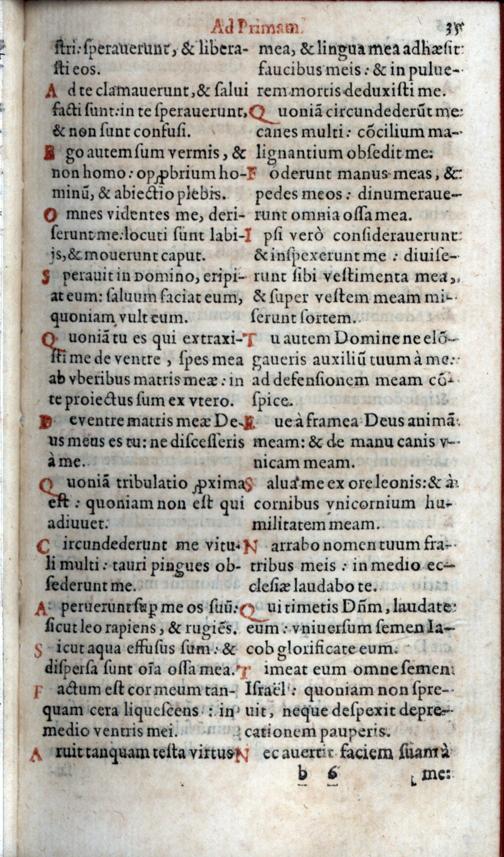 Ad Primam. 35
stri: sperauerunt, & libera-
sti eos.
A d te clamauerunt, & salui
facti sunt: in te sperauerunt,
& non sunt confusi.
E go autem sum vermis, &
non homo: opꝓbrium ho-
minũ, & abiectio plebis.
O mnes videntes me, deri-
serunt me: locuti sunt labi-
js, & mouerunt caput.
S perauit in Domino, eripi-
at eum: saluum faciat eum,
quoniam vult eum.
Q uoniã tu es qui extraxi-
sti me de ventre, spes mea
ab vberibus matris meæ: in
te proiectus sum ex vtero.
D e ventre matris meæ De-
us meus es tu: ne discesseris
à me.
Q uoniã tribulatio ꝓxima
est: quoniam non est qui
adiuuet.
C ircundederunt me vitu-
li multi: tauri pingues ob-
sederunt me.
A peruerunt suꝑ me os suũ:
sicut leo rapiens, & rugiẽs.
S icut aqua effusus sum: &
dispersa sunt oĩa ossa mea.
F actum est cor meum tan-
quam cera liquescens: in
medio ventris mei.
A ruit tanquam testa virtus
mea, & lingua mea adhæsit
faucibus meis: & in pulue-
rem mortis deduxisti me.
Q uoniã circundederũt me
canes multi: cõcilium ma-
lignantium obsedit me:
F oderunt manus meas, &
pedes meos: dinumeraue-
runt omnia ossa mea.
I psi verò considerauerunt
& inspexerunt me: diuise-
runt sibi vestimenta mea,
& super vestem meam mi-
serunt sortem.
T u autem Domine ne elõ-
gaueris auxiliũ tuum à me:
ad defensionem meam cõ-
spice.
E rue à framea Deus animã
meam: & de manu canis v-
nicam meam.
S alua me ex ore leonis: & à
cornibus vnicornium hu-
militatem meam.
N arrabo nomen tuum fra-
tribus meis: in medio ec-
clesiæ laudabo te.
Q ui timetis Dñm, laudate
eum: vniuersum semen Ia-
cob glorificate eum.
T imeat eum omne semen
Israël: quoniam non spre-
uit, neque despexit depre-
cationem pauperis.
N ec auertit faciem suam à
b 6 me: